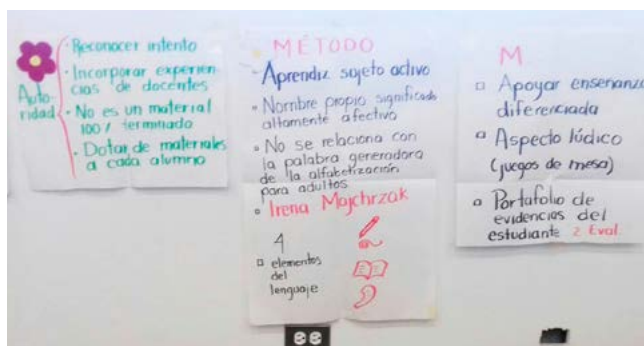 Auto-
ridad
· Reconocer intento
· Incorporar experien-
cias de docentes
· No es un material
100% terminado
· Dotar de materiales
a cada alumno
MÉTODO
· Aprendiz sujeto activo
· Nombre propio significado
altamente afectivo
· No se relaciona con
la palabra generadora
de la alfabetización
para adultos
· Irena Majchrzak
4
elementos
del
lenguaje
M
Apoyar enseñanza
diferenciada
Aspecto lúdico
(juegos de mesa)
Portafolio de
evidencias del
estudiante ¿ Eval.